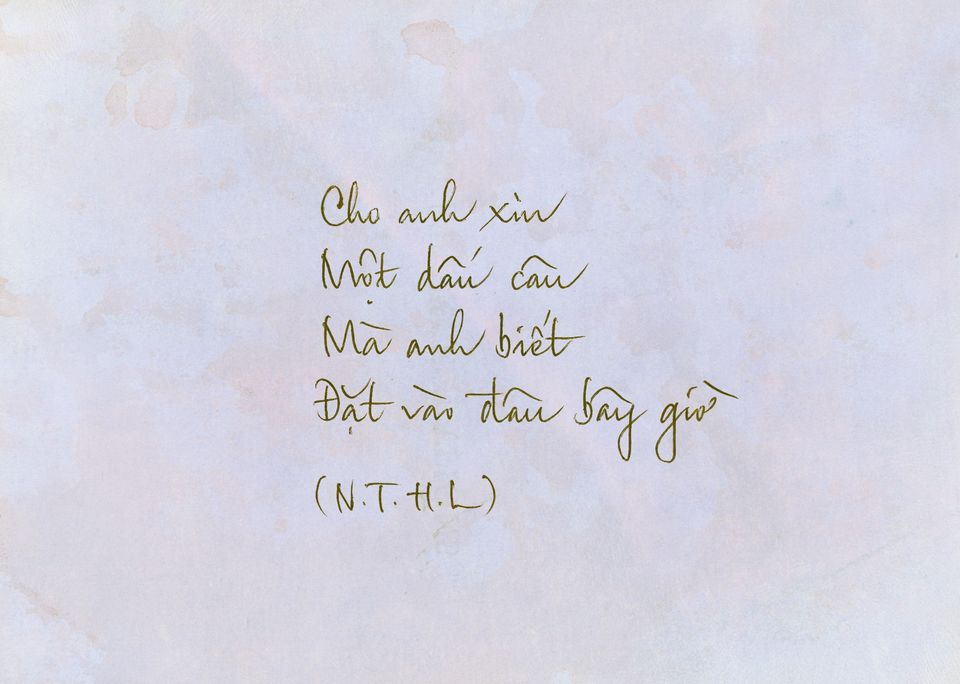 Cho anh xin
Một dấu câu
Mà anh biết
Đặt vào đâu bây giờ
(N.T.H.L)